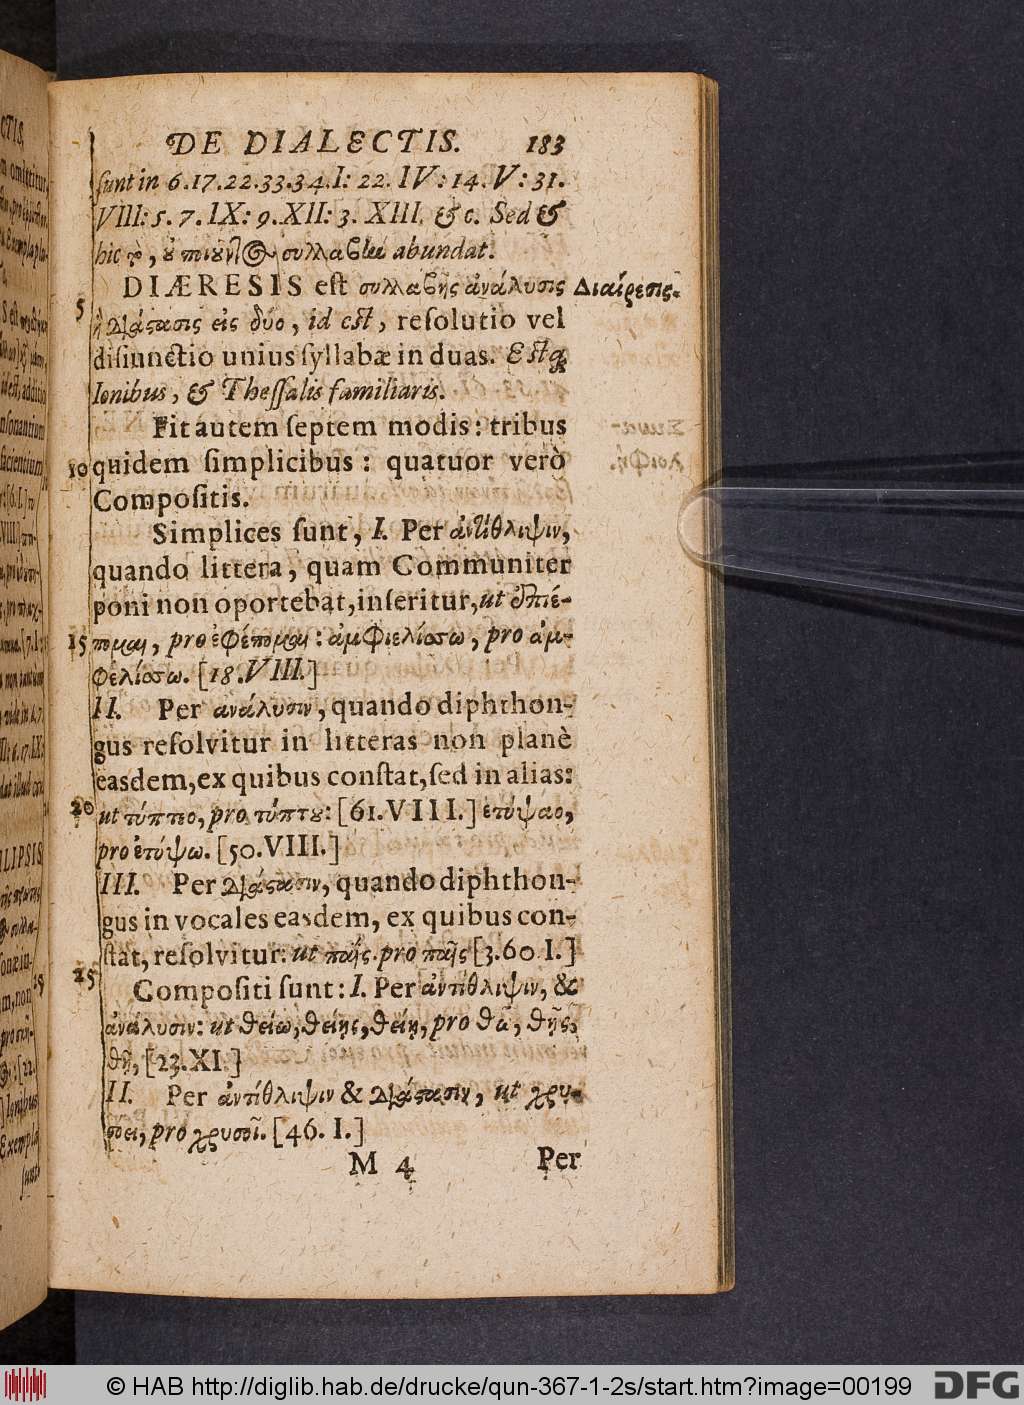 DE DIALECTIS. 183
sunt in 6.17.22.33.34.I: 22. IV: 14. V: 31.
VIII: 5. 7. IX: 9. XII: 3. XIII. & c. Sed &
hic abundat.
DIÆRESIS est συλλαβῆς ἀνάλυσις
Διαίρεσις.
5
ἢ διάστασις εἰς δύο, id est, resolutio vel
disiunctio unius syllabæ in duas. Estq́
Ionibus, & Thessalis familiaris.
Fit autem septem modis: tribus
10 quidem simplicibus: quatuor verò
Compositis.
Simplices sunt, I. Per ἀντίθληψιν,
quando littera, quam Communiter
poni non oportebat, inseritur, ut ἐπιέ-
15 πομαι, pro ἐφέπομαι: ἀμφιελίασω, pro ἀμ-
φελίασω. [18.VIII.]
II. Per ανάλυσιν, quando diphthon-
gus resolvitur in litteras non planè
easdem, ex quibus constat, sed in alias:
20 ut τύπτεο, pro τύπτου: [61.VIII.] ετύψαο,
pro ἐτύψω. [50.VIII.]
III. Per διάστασιν, quando diphthon-
gus in vocales easdem, ex quibus con-
stat, resolvitur: ut παΐς. pro παῖς [3.60 I.]
25
Compositi sunt: I. Per ἀντίθληψιν, &
ἀνάλυσιν: ut θείω, θείης, θείῃ, pro θῶ, θῇς,
θῇ, [23.XI.]
II. Per ἀντίθληψιν & διάστασιν, ut χρυ-
σοει, pro χρυσοῖ. [46. I.]
M 4 Per
© HAB http://diglib.hab.de/drucke/qun-367-1-2s/start.htm?image=00199
DFG